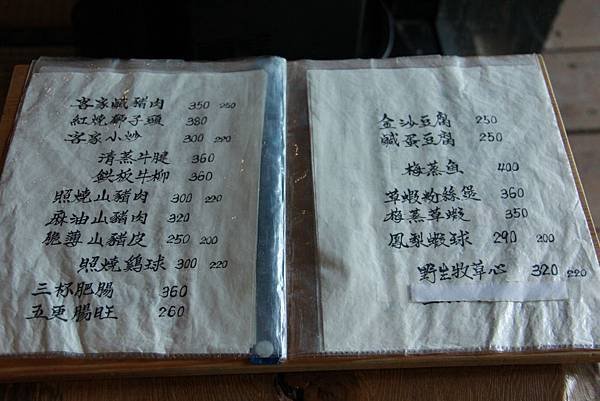 客家鹹豬肉 350 250
紅燒獅子頭 380
客家小炒 300 220
清蒸牛腱 360
鉄板牛柳 360
照燒山豬肉 300 220
麻油山豬肉 320
脆薄山豬皮 250 200
照燒鷄球 300 220
三杯肥腸 360
五更腸旺 260
金沙豆腐 250
鹹蛋豆腐 250
梅蒸魚 400
草蝦粉絲煲 360
梅蒸草蝦 350
鳳梨蝦球 290 200
野生牧草心 320 220